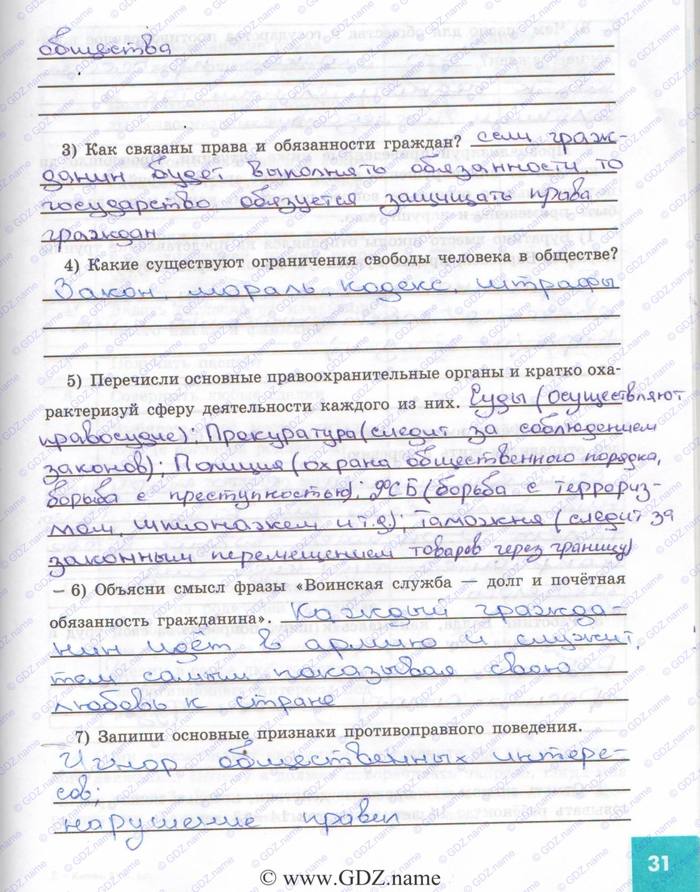 общества
3) Как связаны права и обязанности граждан? если граж-
данин будет выполнять обязанности, то
государство обязуется защищать права
граждан
4) Какие существуют ограничения свободы человека в обществе?
Закон, мораль, кодекс, штрафы
5) Перечисли основные правоохранительные органы и кратко оха-
рактеризуй сферу деятельности каждого из них. Суды (осуществляют
правосудие); Прокуратура (следит за соблюдением
законов); Полиция (охрана общественного порядка,
борьба с преступностью); ФСБ (борьба с террориз-
мом, шпионажем и т.д); Таможня (следит за
законным перемещением товаров через границу)
6) Объясни смысл фразы «Воинская служба — долг и почётная
обязанность гражданина». Каждый гражда-
нин идёт в армию и служит,
тем самым показывая свою
любовь к стране
7) Запиши основные признаки противоправного поведения.
Игнор общественных интере-
сов;
нарушение правил
31
© www.GDZ.name